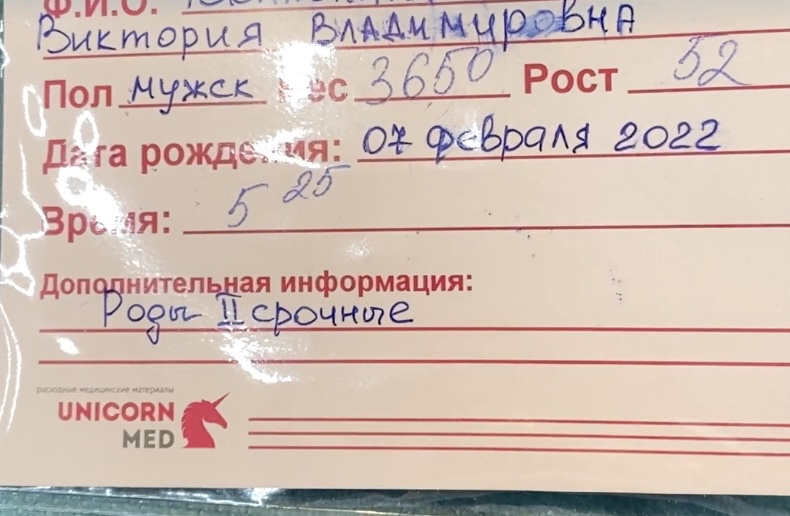 Ф.И.О.
Виктория Владимуровна
Пол мужск Вес 3650 Рост 52
Дата рождения: 07 февраля 2022
Время: 5 25
Дополнительная информация:
Роды II срочные
расходные медицинские материалы
UNICORN
MED